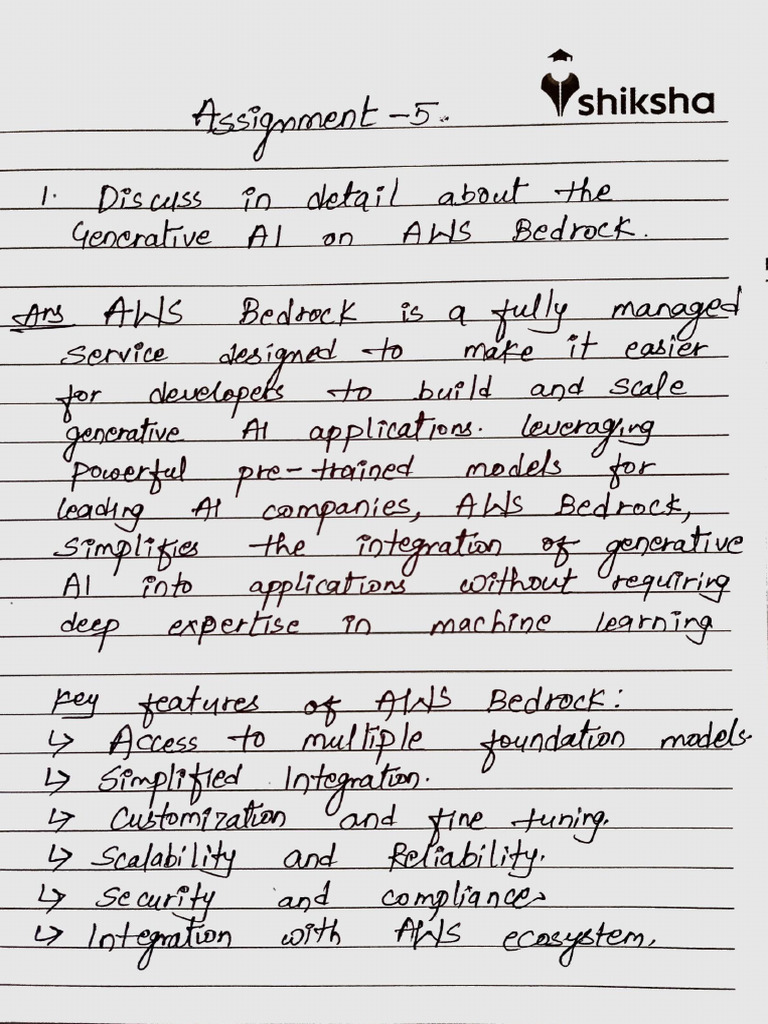 shiksha
Assignment - 5.
1. Discuss in detail about the
Generative AI on AWS Bedrock.
Ans AWS Bedrock is a fully managed
service designed to make it easier
for developers to build and scale
generative AI applications. leveraging
powerful pre-trained models for
leading AI companies, AWS Bedrock,
simplifies the integration of generative
AI into applications without requiring
deep expertise in machine learning
Key features of AWS Bedrock:
↳ Access to multiple foundation models.
↳ Simplified Integration.
↳ Customization and fine tuning.
↳ Scalability and Reliability.
↳ Security and compliance
↳ Integration with AWS ecosystem.